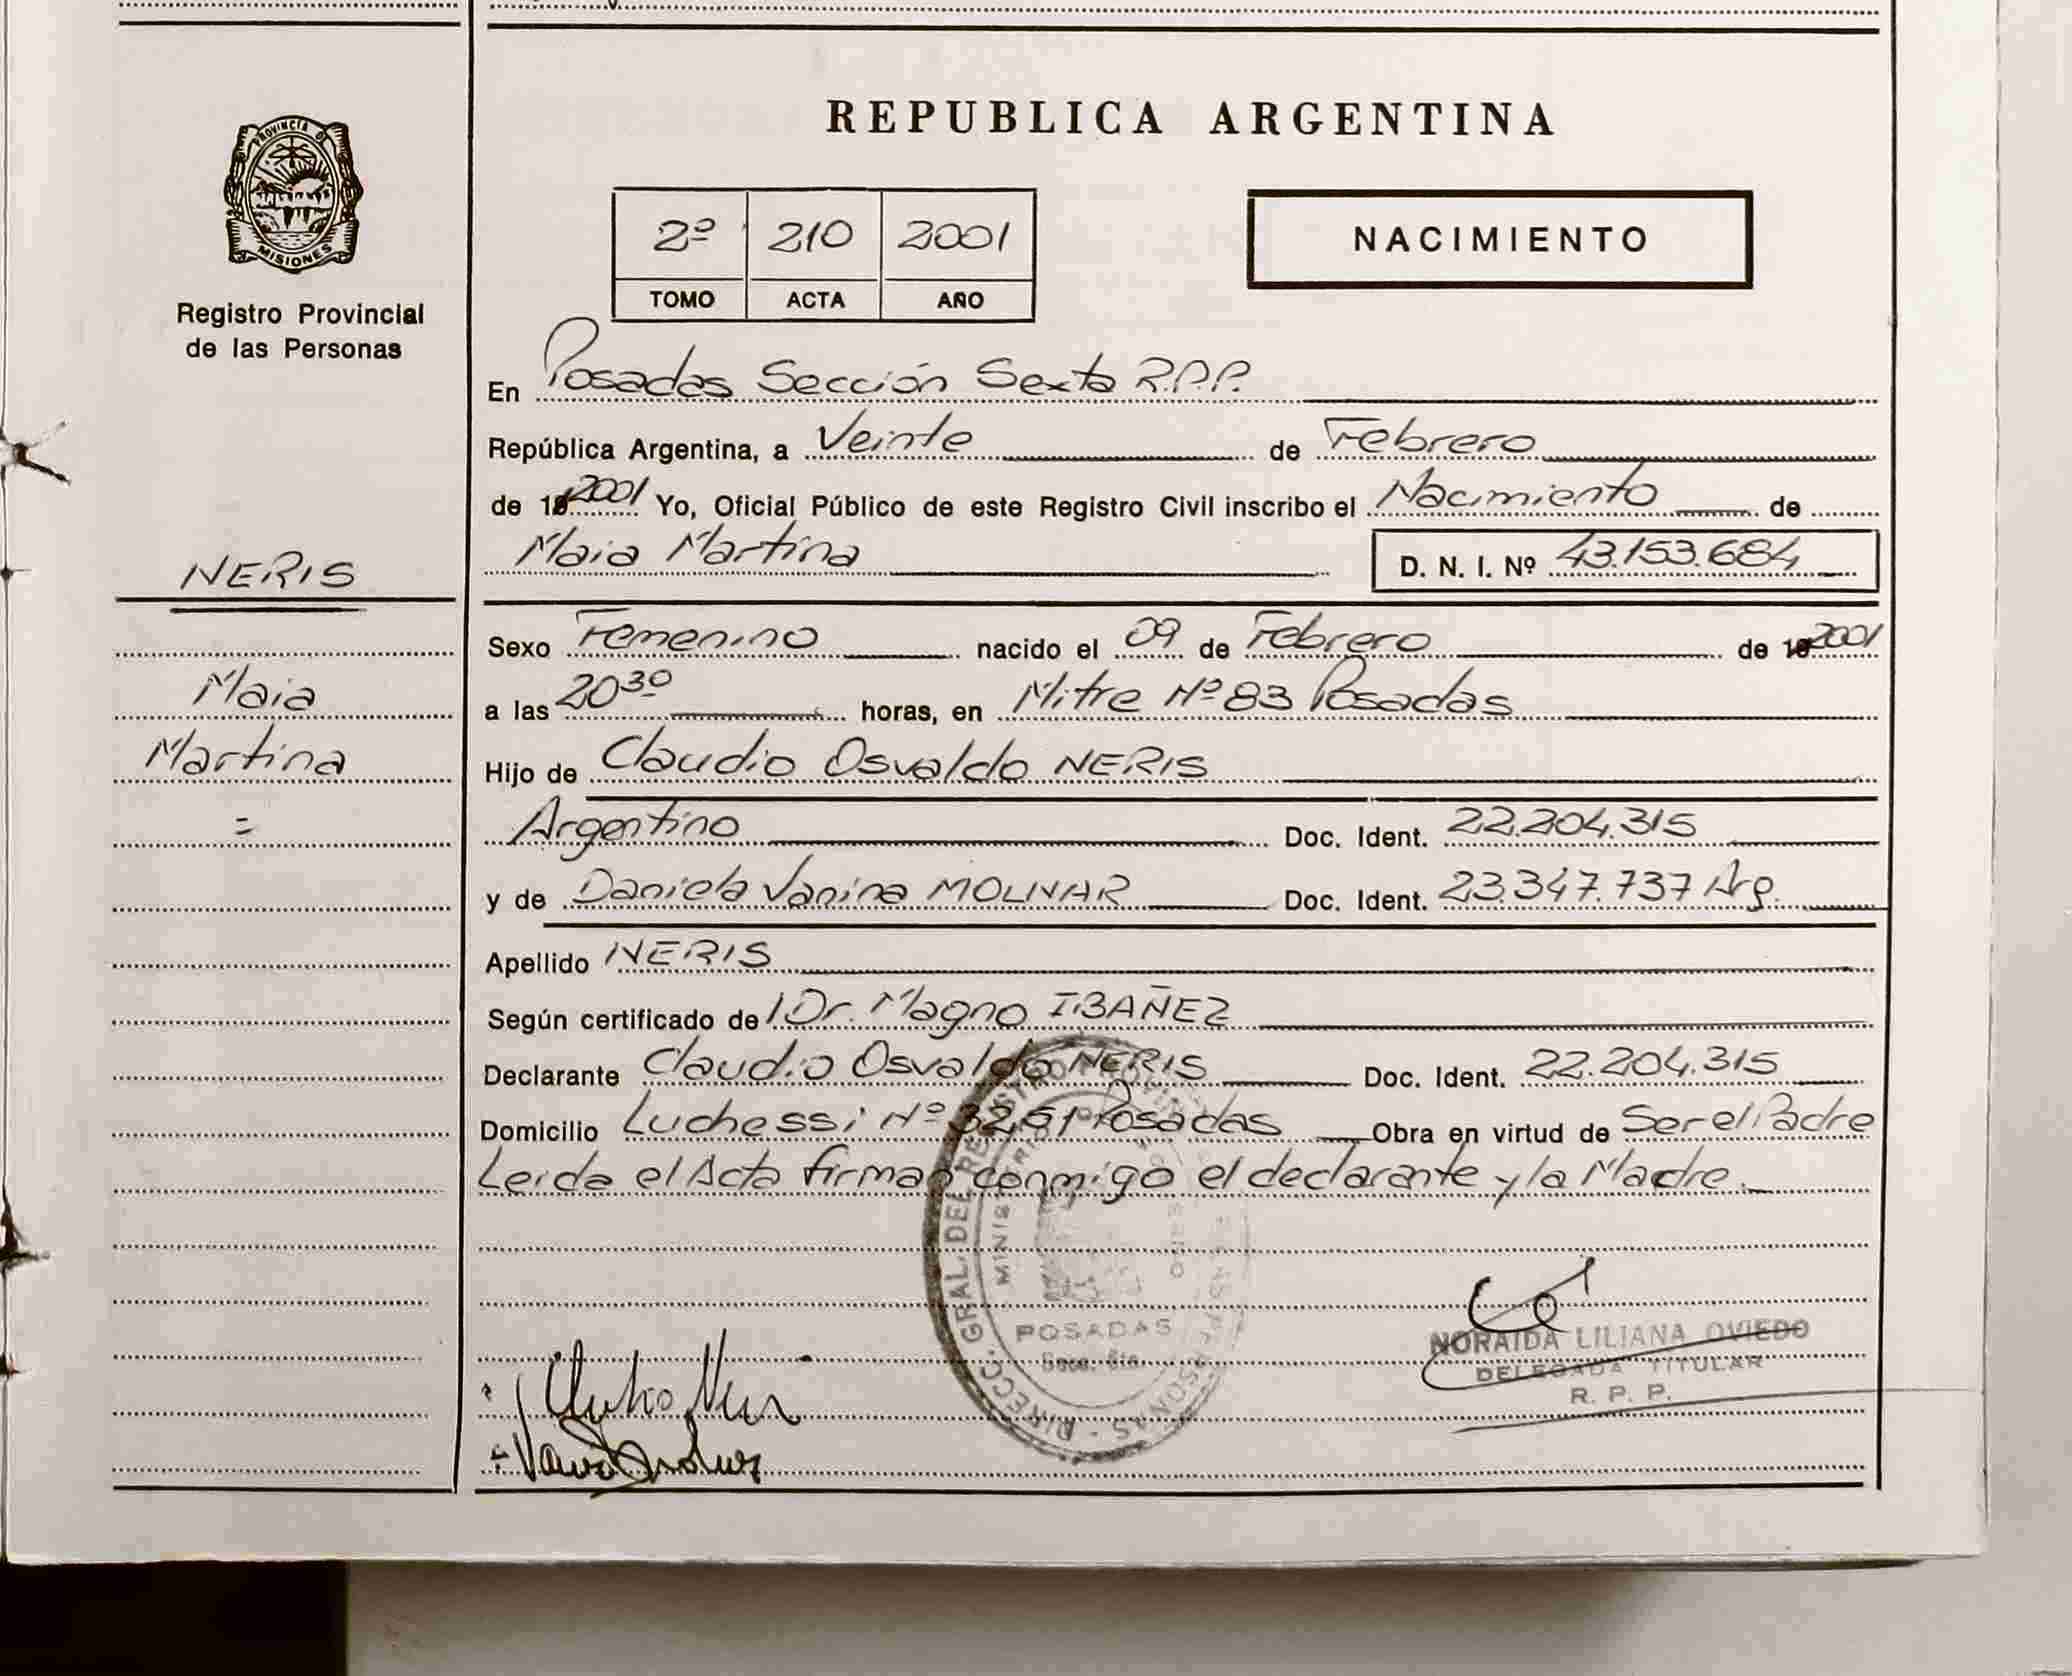 PROVINCIA DE
MISIONES
Registro Provincial
de las Personas
NERIS
Maia
Martina
=
REPUBLICA ARGENTINA
2º 210 2001
TOMO ACTA AÑO
NACIMIENTO
En Posadas Sección Sexta R.P.P.
República Argentina, a Veinte de Febrero
de 2001 Yo, Oficial Público de este Registro Civil inscribo el Nacimiento de
Maia Martina D. N. I. Nº 43.153.684
Sexo Femenino nacido el 09 de Febrero de 2001
a las 20³⁰ horas, en Mitre Nº 83 Posadas
Hijo de Claudio Osvaldo NERIS
Argentino Doc. Ident. 22.204.315
y de Daniela Vanina MOLNAR Doc. Ident. 23.347.737 Arg.
Apellido NERIS
Según certificado de Dr. Magno IBAÑEZ
Declarante Claudio Osvaldo NERIS Doc. Ident. 22.204.315
Domicilio Luchessi Nº 3251 Posadas Obra en virtud de Ser el Padre
Leida el Acta firman conmigo el declarante y la Madre.
DIRECC. GRAL. DEL REGISTRO
POSADAS
Secc. 6ta.
NORAIDA LILIANA OVIEDO
DELEGADA TITULAR
R. P. P.